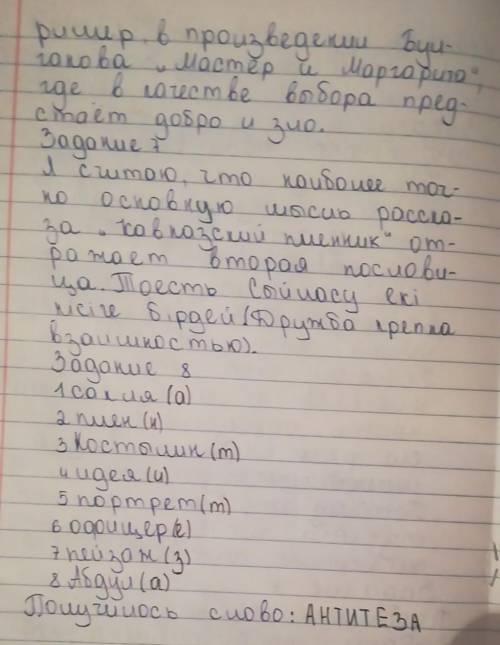 ример в произведении Бул-
гакова „Мастер и Маргарита",
где в качестве выбора пред-
стаёт добро и зло.
Задание 7
Я считаю, что наиболее точ-
но основную мысль расска-
за „Кавказский пленник" от-
ражает вторая послови-
ца. Тоесть Сыйласу екі
кісіге бірдей (Дружба крепка
взаимностью).
Задание 8
1 сакля (а)
2 плен (н)
3 Костылин (т)
4 идея (и)
5 портрет (т)
6 офицер (е)
7 пейзаж (з)
8 Абдул (а)
Получилось слово: АНТИТЕЗА